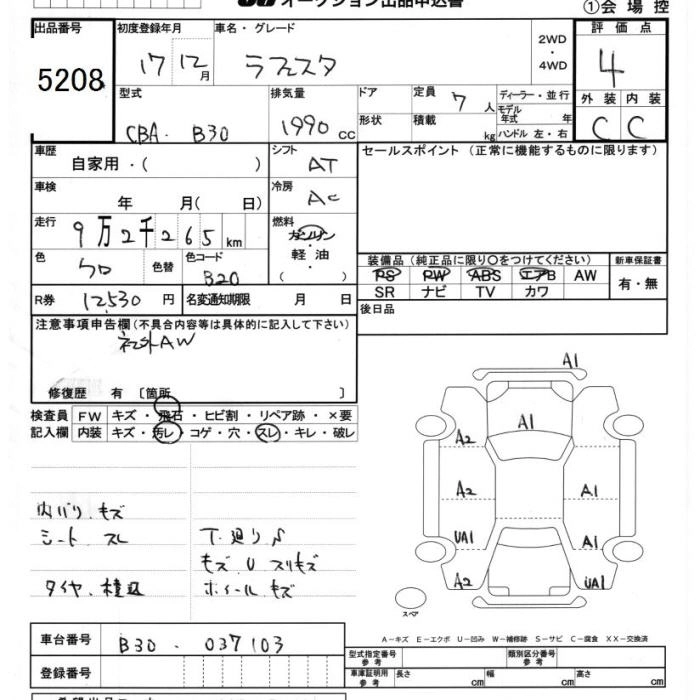 オークション出品申込書
①会場控
出品番号
5208
初度登録年月
17 12月
車名・グレード
ラフェスタ
2WD
・
4WD
評価点
4
外装 内装
C C
型式
CBA・B30
排気量
1990 cc
ドア
形状
定員 7 人
積載 kg
ディーラー・並行
モデル年式 年
ハンドル 左・右
車歴
自家用・( )
シフト
AT
セールスポイント (正常に機能するものに限ります)
車検
年 月( 日)
冷房
AC
走行
9万2千265 km
燃料
ガソリン
・
軽油
( )
色
クロ
色替
色コード
B20
装備品 (純正品に限り○をつけてください)
PS PW ABS エアB AW
SR ナビ TV カワ
新車保証書
有・無
R券 12,530 円
名変通知期限 月 日
後日品
注意事項申告欄(不具合内容等は具体的に記入して下さい)
社外AW
修復歴 有〔箇所 〕
検査員
記入欄
FW キズ・飛石・ヒビ割・リペア跡・×要
内装 キズ・汚レ・コゲ・穴・スレ・キレ・破レ
内バリ、キズ
シート、スレ
タイヤ、積込
下廻りサ
キズ U スリキズ
ホイール、キズ
A1
A1
A2
A2
A1
UA1
A1
A2
UA1
スペア
A－キズ E－エクボ U－凹み W－補修跡 S－サビ C－腐食 XX－交換済
車台番号
B30 - 037103
登録番号
型式指定番号
参考
類別区分番号
参考
車庫証明用
参考
長さ cm
幅 cm
高さ cm